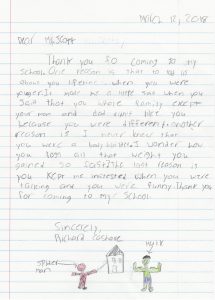 2018
Dear Ms. Scott
Thank you so coming to my
School. One reason is that to told us
about you when you were
younger. It made me a little sad when you
Said that you whole family except
your mom and dad didn't like you
because you were different. another
reason is I never knew that
you were a bodybuilder. I wonder how
you loss all that weight you
gained so fast. The last reason is
you kept me interested when you were
talking and you were funny. Thank you
for coming to my School
Sincerely,
Richard
Spider
man
Hulk